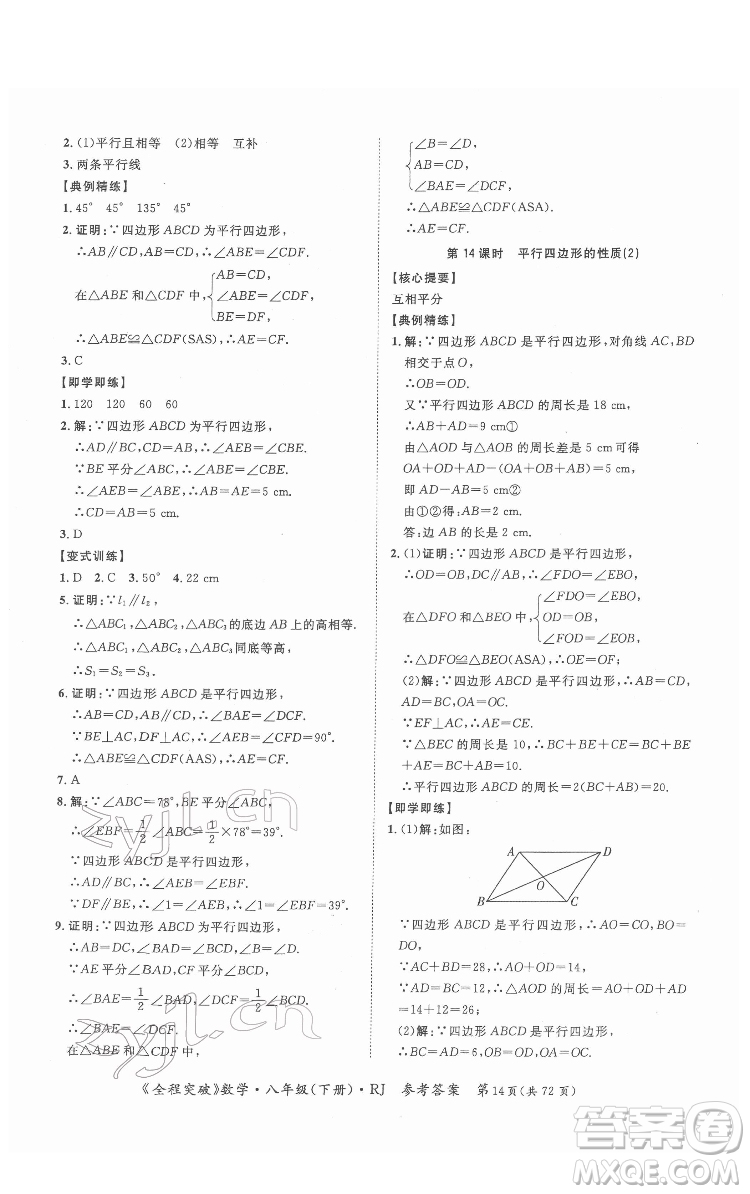 2. (1)平行且相等 (2)相等 互补
3. 两条平行线
【典例精练】
1. 45° 45° 135° 45°
2. 证明:∵四边形 ABCD 为平行四边形,
∴AB∥CD,AB=CD,∴∠ABE=∠CDF.
在△ABE 和△CDF 中,{AB=CD,
∠ABE=∠CDF,
BE=DF,
∴△ABE≌△CDF(SAS),∴AE=CF.
3. C
【即学即练】
1. 120 120 60 60
2. 解:∵四边形 ABCD 为平行四边形,
∴AD∥BC,∴∠AEB=∠CBE.
∵BE 平分∠ABC,∴∠ABE=∠CBE.
∴∠ABE=∠AEB,∴AB=AE=5 cm.
∴CD=AB=5 cm.
3. D
【变式训练】
1. D 2. C 3. 50° 4. 22 cm
5. 证明:∵l₁∥l₂,
∴△ABC₁,△ABC₂,△ABC₃的底边 AB 上的高相等.
∴△ABC₁,△ABC₂,△ABC₃同底等高,
∴S₁=S₂=S₃.
6. 证明:∵四边形 ABCD 是平行四边形,
∴AB=CD,∴∠BAE=∠DCF.
∵BE⊥AC,DF⊥AC,∴∠AEB=∠CFD=90°.
∴△ABE≌△CDF(AAS),∴AE=CF.
7. A
8. 解:∵∠ABC=78°,BE 平分∠ABC,
∴∠EBF=1/2∠ABC=1/2×78°=39°.
∵四边形 ABCD 是平行四边形,
∴AD∥BC,∴∠AEB=∠EBF=39°.
∵DF∥BE,∴∠1=∠AEB=39°.
9. 证明:∵四边形 ABCD 是平行四边形,
∴AB=DC,∠BAD=∠BCD,∠B=∠D.
∵AE 平分∠BAD,CF 平分∠BCD,
∴∠BAE=1/2∠BAD,∠DCF=1/2∠BCD.
∴∠BAE=∠DCF.
在△ABE 和△CDF 中,
{∠B=∠D,
AB=CD,
∠BAE=∠DCF,
∴△ABE≌△CDF(ASA).
∴AE=CF.
第 14 课时 平行四边形的性质(2)
【核心提要】
互相平分
【典例精练】
1. 解:∵四边形 ABCD 是平行四边形,对角线 AC,BD
相交于点 O,
∴OB=OD.
又∵平行四边形 ABCD 的周长是 18 cm,
∴AB+AD=9 cm①
由△AOD 与△AOB 的周长差是 5 cm 可得
OA+OD+AD-(OA+OB+AB)=5 cm,
即 AD-AB=5 cm②
由①②得:AB=2 cm.
答:边 AB 的长是 2 cm.
2. (1)证明:∵四边形 ABCD 是平行四边形,
∴OD=OB,AD∥BC,∴∠FDO=∠EBO.
在△DFO 和△BEO 中,{∠FDO=∠EBO,
OD=OB,
∠FOD=∠EOB,
∴△DFO≌△BEO(ASA).
(2)解:∵四边形 ABCD 是平行四边形,∴AB=CD,
AD=BC,OA=OC.
∵EF⊥AC,∴AE=CE.
∵△BEC 的周长是 10,∴BC+BE+CE=BC+BE+
AE=BC+AB=10.
∴平行四边形 ABCD 的周长=2(BC+AB)=20.
【即学即练】
1. (1)解:如图:
A
D
O
B
C
∵四边形 ABCD 是平行四边形,∴AO=CO,BO=
DO,
∵AC+BD=28,∴AO+OD=14,
∵AD=12,∴△AOD 的周长=AO+OD+AD
=14+12=26;
(2)解:∵四边形 ABCD 是平行四边形,
∴AO=CO,BO=DO,
《全程突破》数学·八年级(下册)·RJ 参考答案 第14页(共 72 页)
zyjl.cn
zyjl.cn
答案圈
MXQE.COM